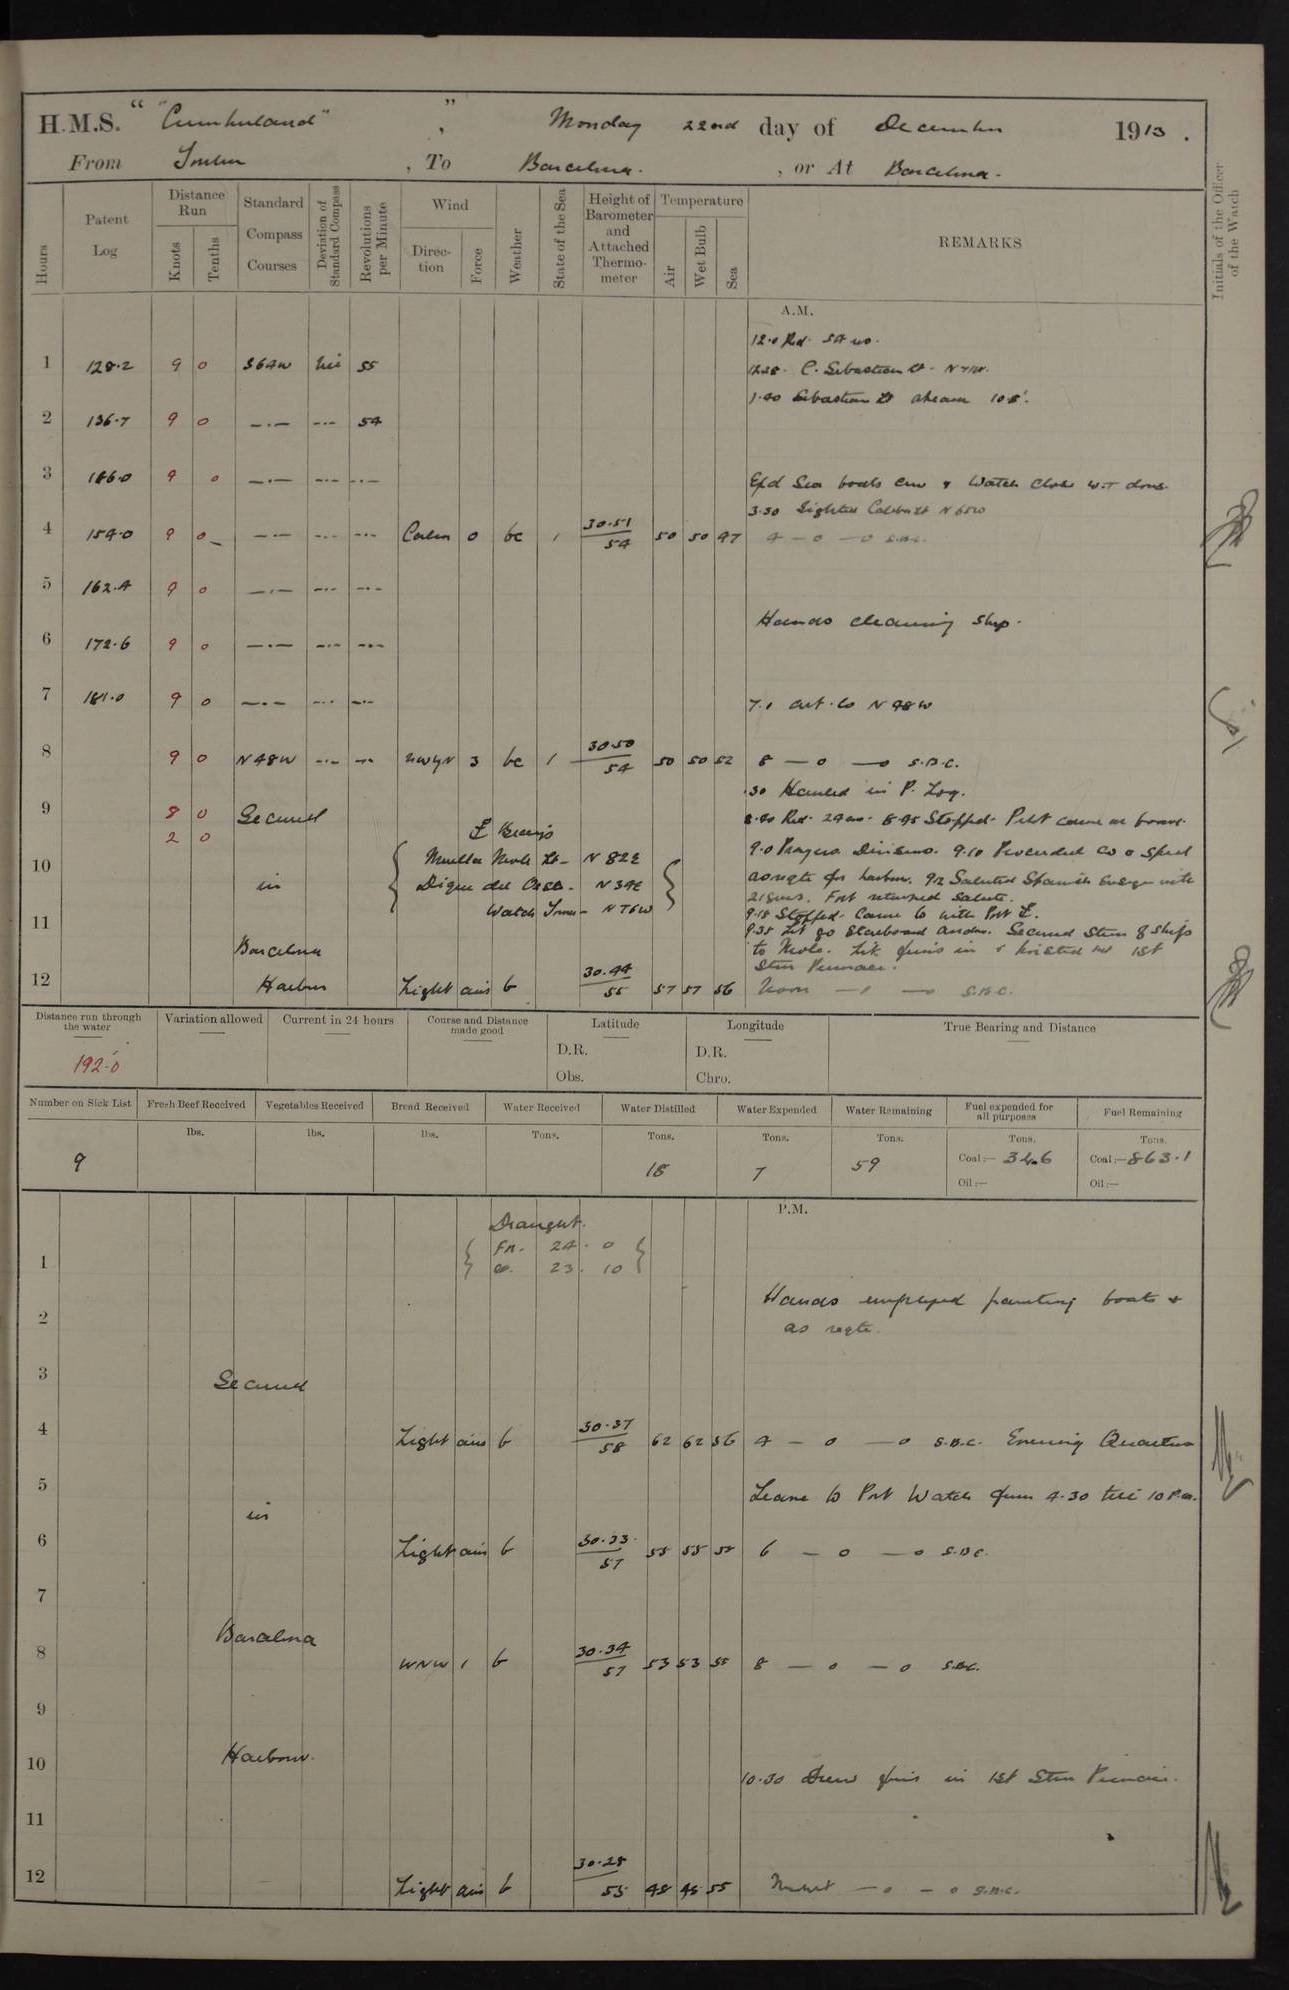 H.M.S. “ "Cumberland" ” , Monday 22nd day of December 1913 .
From Toulon , To Barcelona. , or At Barcelona.
Hours
Patent Log
Distance Run
Knots
Tenths
Standard Compass Courses
Deviation of Standard Compass
Revolutions per Minute
Wind
Direction
Force
Weather
State of the Sea
Height of Barometer and Attached Thermometer
Temperature
Air
Wet Bulb
Sea
REMARKS
Initials of the Officer of the Watch
A.M.
1 128.2 9 0 S64W nil 55
C. Sebastian Lt
1.40 Sebastian Lt abeam 10.8'.
2 136.7 9 0 —·— —·— 54
3 9 0 —·— —·— —·—
Expd Sea boats crew & Watch
3.30 Sighted N65W
4 154.0 9 0 —·— —·— —·— Calm 0 bc 1 30.51 54 50 50 47 4 — 0 — 0 S.B.C.
5 162.4 9 0 —·— —·— —·—
Hands cleaning ship.
6 172.6 9 0 —·— —·— —·—
7 181.0 9 0 —·— —·— —·— 7.0 alt. Co N48W
8 9 0 N48W —·— —·— NWyN 3 bc 1 30.50 54 50 50 52 8 — 0 — 0 S.B.C.
.30 Hauled in P. Log.
9 8 0 Secured
8.45 Stopped. Pilot came on board.
2 0
Bearings
9.0 Prayers Divisions. 9.10 Proceeded Co & Speed
10 Muella Mole Lt — N82E
as reqte for harbour. 9.12 Saluted Spanish Ensign with
in Dique del Oeste — N34E
21 guns. Fort returned Salute.
Watch Tower — N76W
9.18 Stopped.
11 9.35 Let go Starboard anchor. Secured Stern of Ship
Barcelona to Mole. Lit fires in & hoisted out 1st
Stm Pinnace.
12 Harbour Light airs b 30.44 55 57 57 56 Noon — 0 — 0 S.B.C.
Distance run through the water
192.0
Variation allowed
Current in 24 hours
Course and Distance made good
Latitude
D.R.
Obs.
Longitude
D.R.
Chro.
True Bearing and Distance
Number on Sick List
9
Fresh Beef Received
lbs.
Vegetables Received
lbs.
Bread Received
lbs.
Water Received
Tons.
Water Distilled
Tons.
18
Water Expended
Tons.
7
Water Remaining
Tons.
59
Fuel expended for all purposes
Tons.
Coal:— 34.6
Oil:—
Fuel Remaining
Tons.
Coal:— 863.1
Oil:—
P.M.
Draught.
1 Fd. 24. 0
23. 10
Hands employed painting boats &
2 as reqte.
3 Secured
4 Light airs b 30.37 58 62 62 56 4 — 0 — 0 S.B.C. Evening Quarters
5 Leave to Port Watch from 4.30 till 10 P.M.
in
6 Light airs b 30.33 57 55 55 55 6 — 0 — 0 S.B.C.
7
Barcelona
8 WNW 1 b 30.34 57 53 53 55 8 — 0 — 0 S.B.C.
9
Harbour.
10 10.30 Drew fires in 1st Stm Pinnace.
11
12 Light airs b 30.28 55 48 48 55 Midnt — 0 — 0 S.B.C.